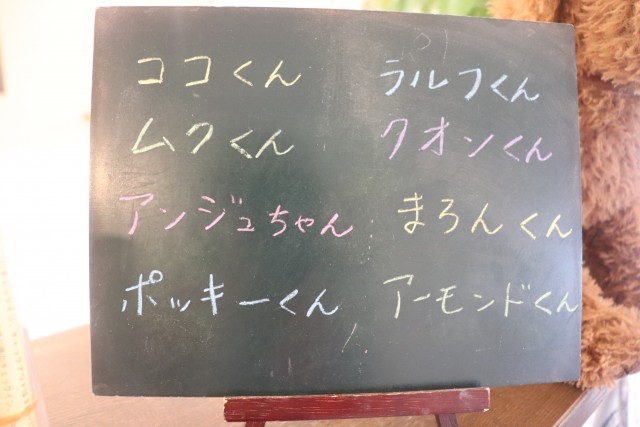 ココくん
ラルフくん
ムクくん
クオンくん
アンジュちゃん
まろんくん
ポッキーくん
アーモンドくん